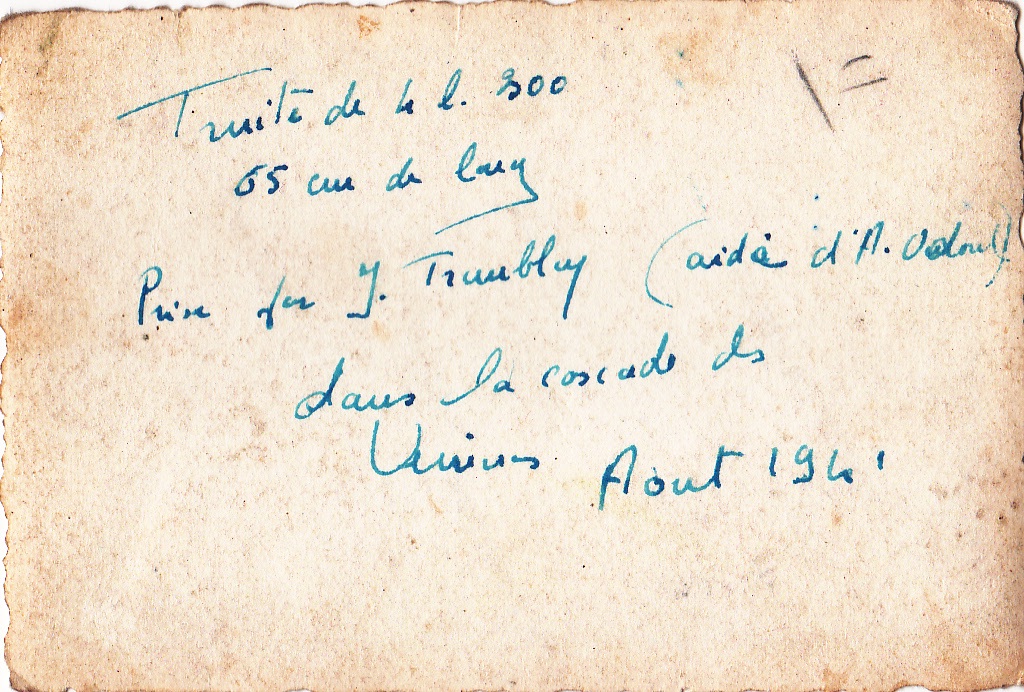 Truite de 4 l. 300
65 cm de long
Prise par J. Tremblay (aidé d'A. Odoul)
dans la cascade des
Août 1941